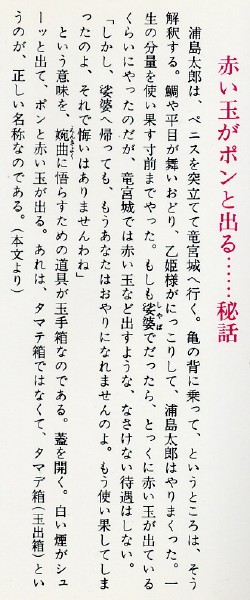 赤い玉がポンと出る……秘話
浦島太郎は、ペニスを突立てて竜宮城へ行く。亀の背に乗って、というところは、そう
解釈する。鯛や平目が舞いおどり、乙姫様がにっこりして、浦島太郎はやりまくった。一
生の分量を使い果す寸前までやった。もしも娑婆でだったら、とっくに赤い玉が出ている
くらいにやったのだが、竜宮城では赤い玉など出すような、なさけない待遇はしない。
「しかし、娑婆へ帰っても、もうあなたはおやりになれませんのよ。もう使い果してしま
ったのよ、それで悔いはありませんわね」
という意味を、婉曲に悟らすための道具が玉手箱なのである。蓋を開く。白い煙がシュ
ーッと出て、ポンと赤い玉が出る。あれは、タマテ箱ではなくて、タマデ箱（玉出箱）とい
うのが、正しい名称なのである。（本文より）